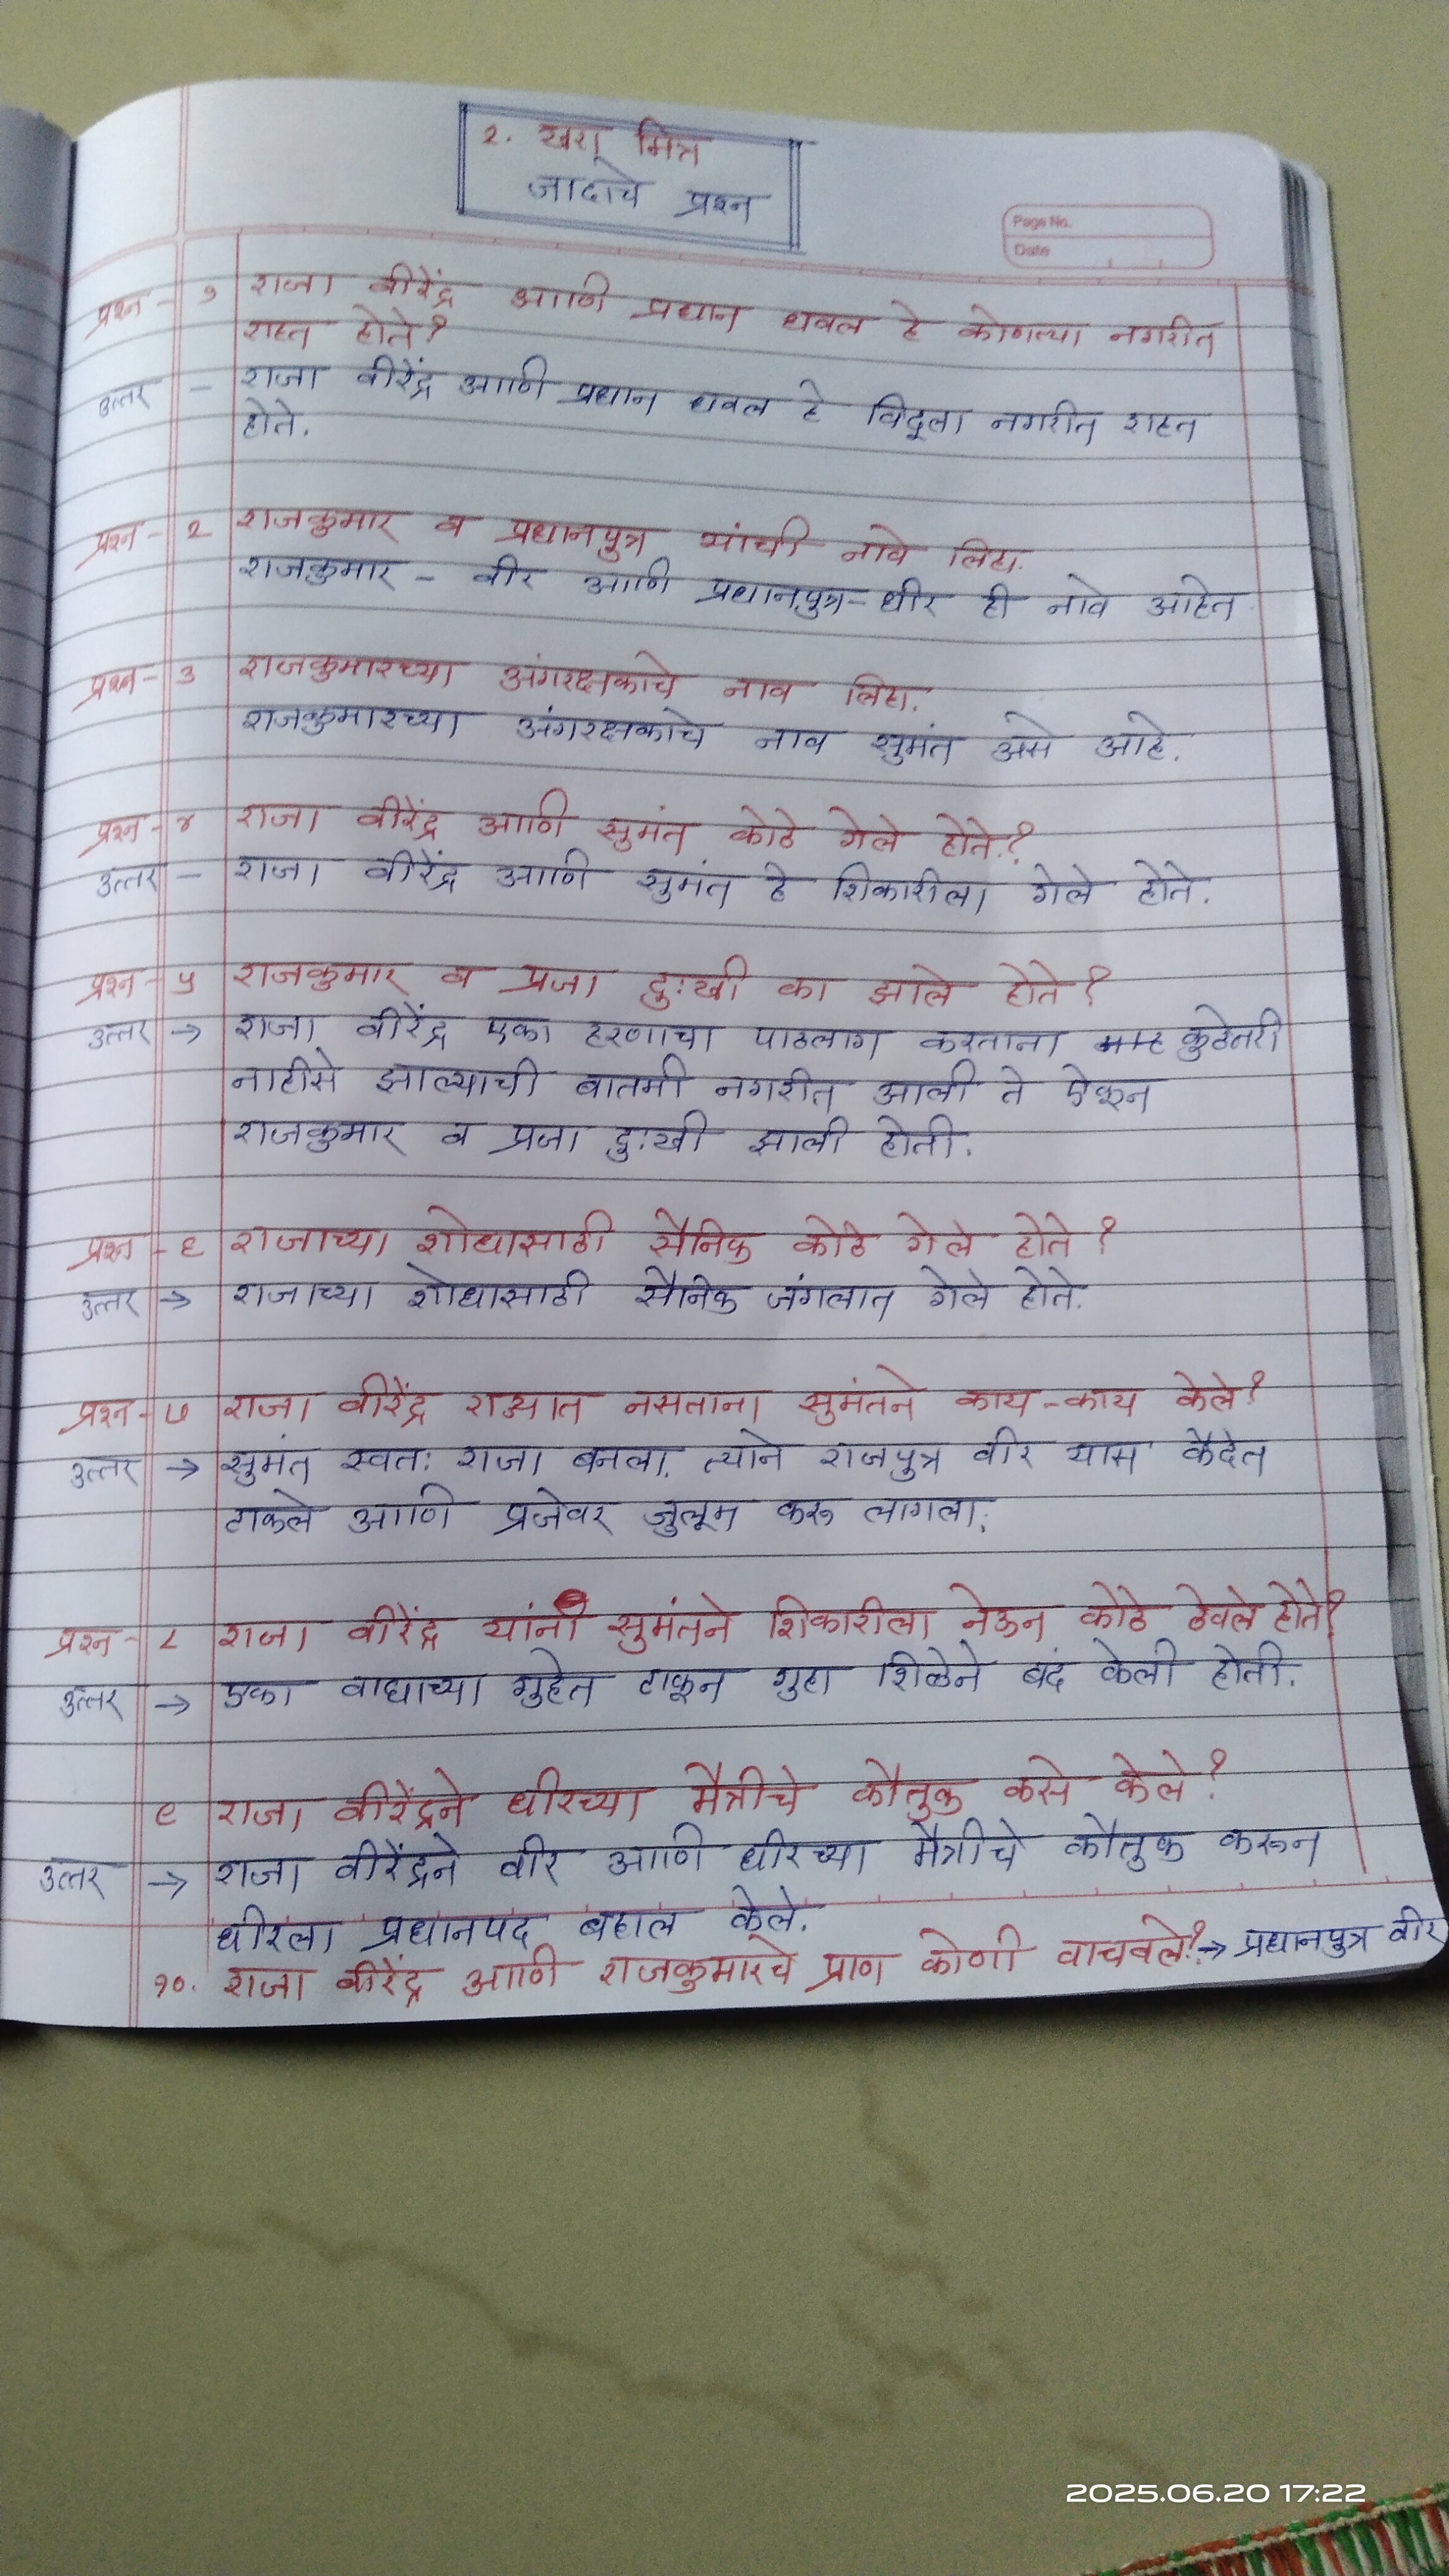 २. खरा मित्र
जादाचे प्रश्न
Page No.
Date
प्रश्न - १ राजा वीरेंद्र आणि प्रधान धवल हे कोणत्या नगरीत
राहत होते?
उत्तर - राजा वीरेंद्र आणि प्रधान धवल हे विदूला नगरीत राहत
होते.
प्रश्न - २ राजकुमार व प्रधानपुत्र यांची नावे लिहा.
राजकुमार - वीर आणि प्रधानपुत्र - धीर ही नावे आहेत
प्रश्न - ३ राजकुमारच्या अंगरक्षकाचे नाव लिहा.
राजकुमारच्या अंगरक्षकाचे नाव सुमंत असे आहे.
प्रश्न - ४ राजा वीरेंद्र आणि सुमंत कोठे गेले होते?
उत्तर - राजा वीरेंद्र आणि सुमंत हे शिकारीला गेले होते.
प्रश्न - ५ राजकुमार व प्रजा दुःखी का झाले होते?
उत्तर → राजा वीरेंद्र एका हरणाचा पाठलाग करताना कुठेनरी
नाहीसे झाल्याची बातमी नगरीत आली ते ऐकून
राजकुमार व प्रजा दुःखी झाली होती.
प्रश्न - ६ राजाच्या शोधासाठी सैनिक कोठे गेले होते?
उत्तर → राजाच्या शोधासाठी सैनिक जंगलात गेले होते.
प्रश्न - ७ राजा वीरेंद्र राज्यात नसताना सुमंतने काय-काय केले?
उत्तर → सुमंत स्वतः राजा बनला. त्याने राजपुत्र वीर यास कैदेत
टाकले आणि प्रजेवर जुलूम करू लागला.
प्रश्न - ८ राजा वीरेंद्र यांनी सुमंतने शिकारीला नेऊन कोठे ठेवले होते?
उत्तर → एका वाघाच्या गुहेत टाकून गुहा शिळेने बंद केली होती.
९ राजा वीरेंद्रने धीरच्या मैत्रीचे कौतुक कसे केले?
उत्तर → राजा वीरेंद्रने वीर आणि धीरच्या मैत्रीचे कौतुक करून
धीरला प्रधानपद बहाल केले.
१०. राजा वीरेंद्र आणि राजकुमारचे प्राण कोणी वाचवले? → प्रधानपुत्र वीर
2025.06.20 17:22